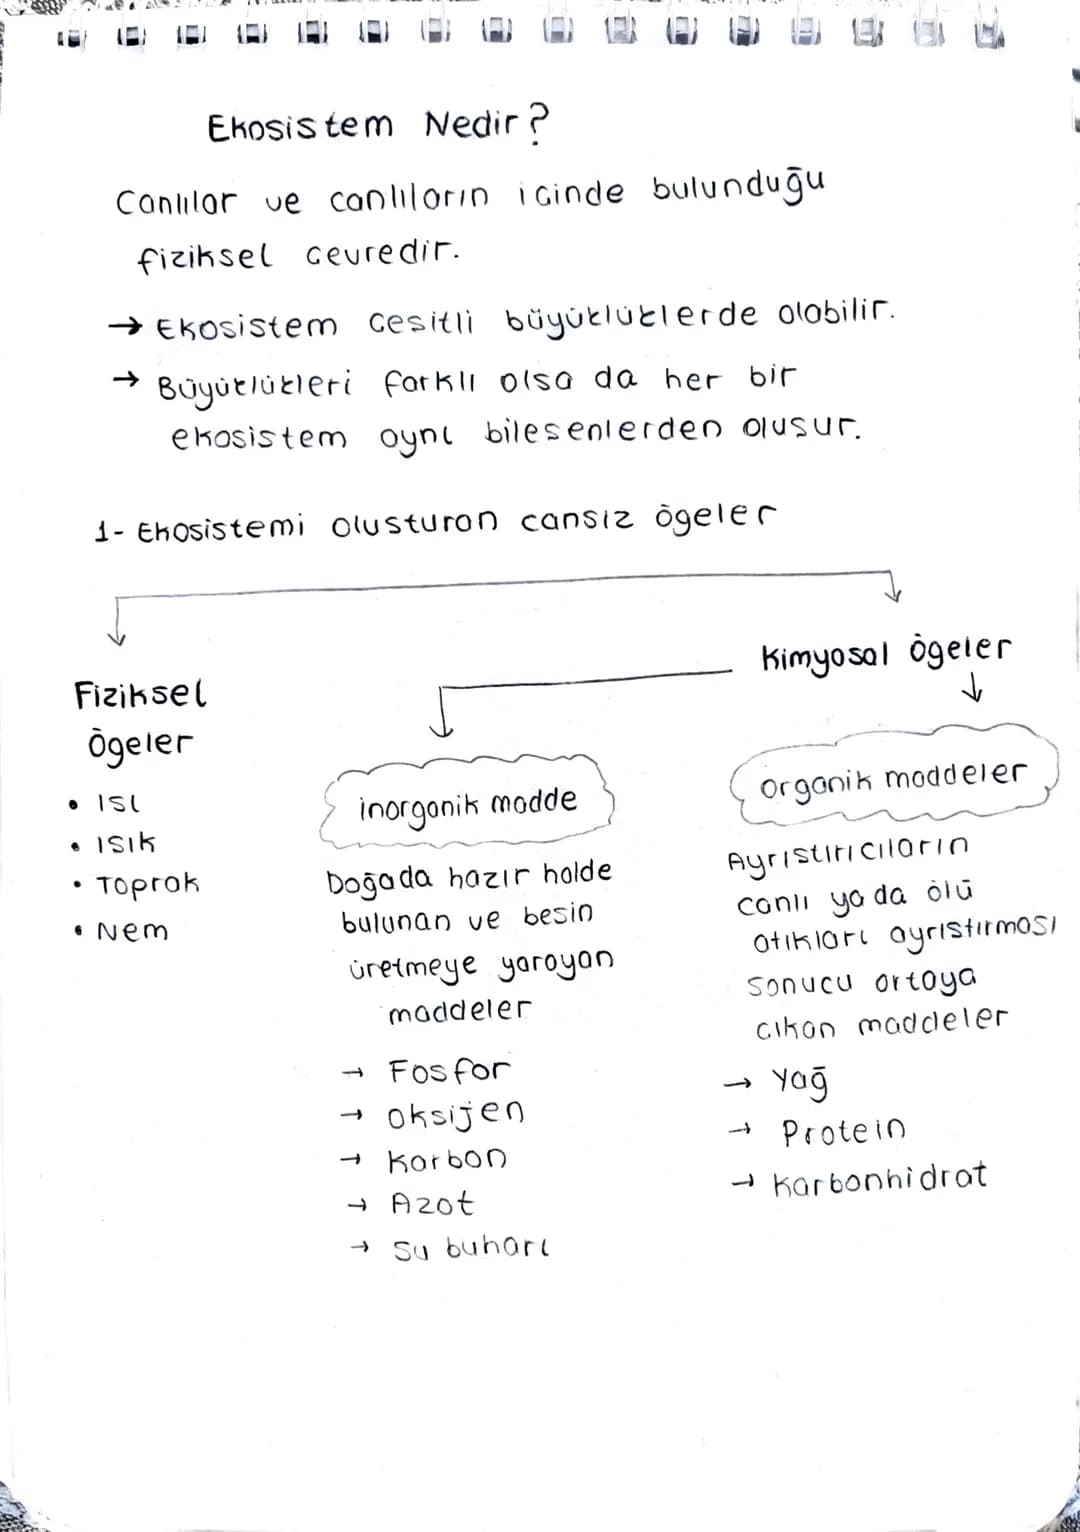 Ekosistem Nedir?
Canlılar ve canlıların icinde bulunduğu
fiziksel cevredir.
→ Ekosistem cesitli büyüklüklerde olabilir.
→ Büyüklükleri farklı olsa da her bir
ekosistem aynı bilesenlerden olusur.
1- Ekosistemi olusturan cansız ögeler
Fiziksel
Ögeler
• ısı
• ısık
• Toprak
• Nem
Kimyasal ögeler
inorganik madde
Doğada hazır halde
bulunan ve besin
üretmeye yarayan
maddeler
→ Fosfor
→ oksijen
→ Karbon
→ Azot
→ su buharı
organik maddeler
Ayrıstırıcıların
canlı ya da ölü
atıkları ayrıstırması
sonucu ortaya
cıkan maddeler
→ Yağ
→ Protein
→ Karbonhidrat